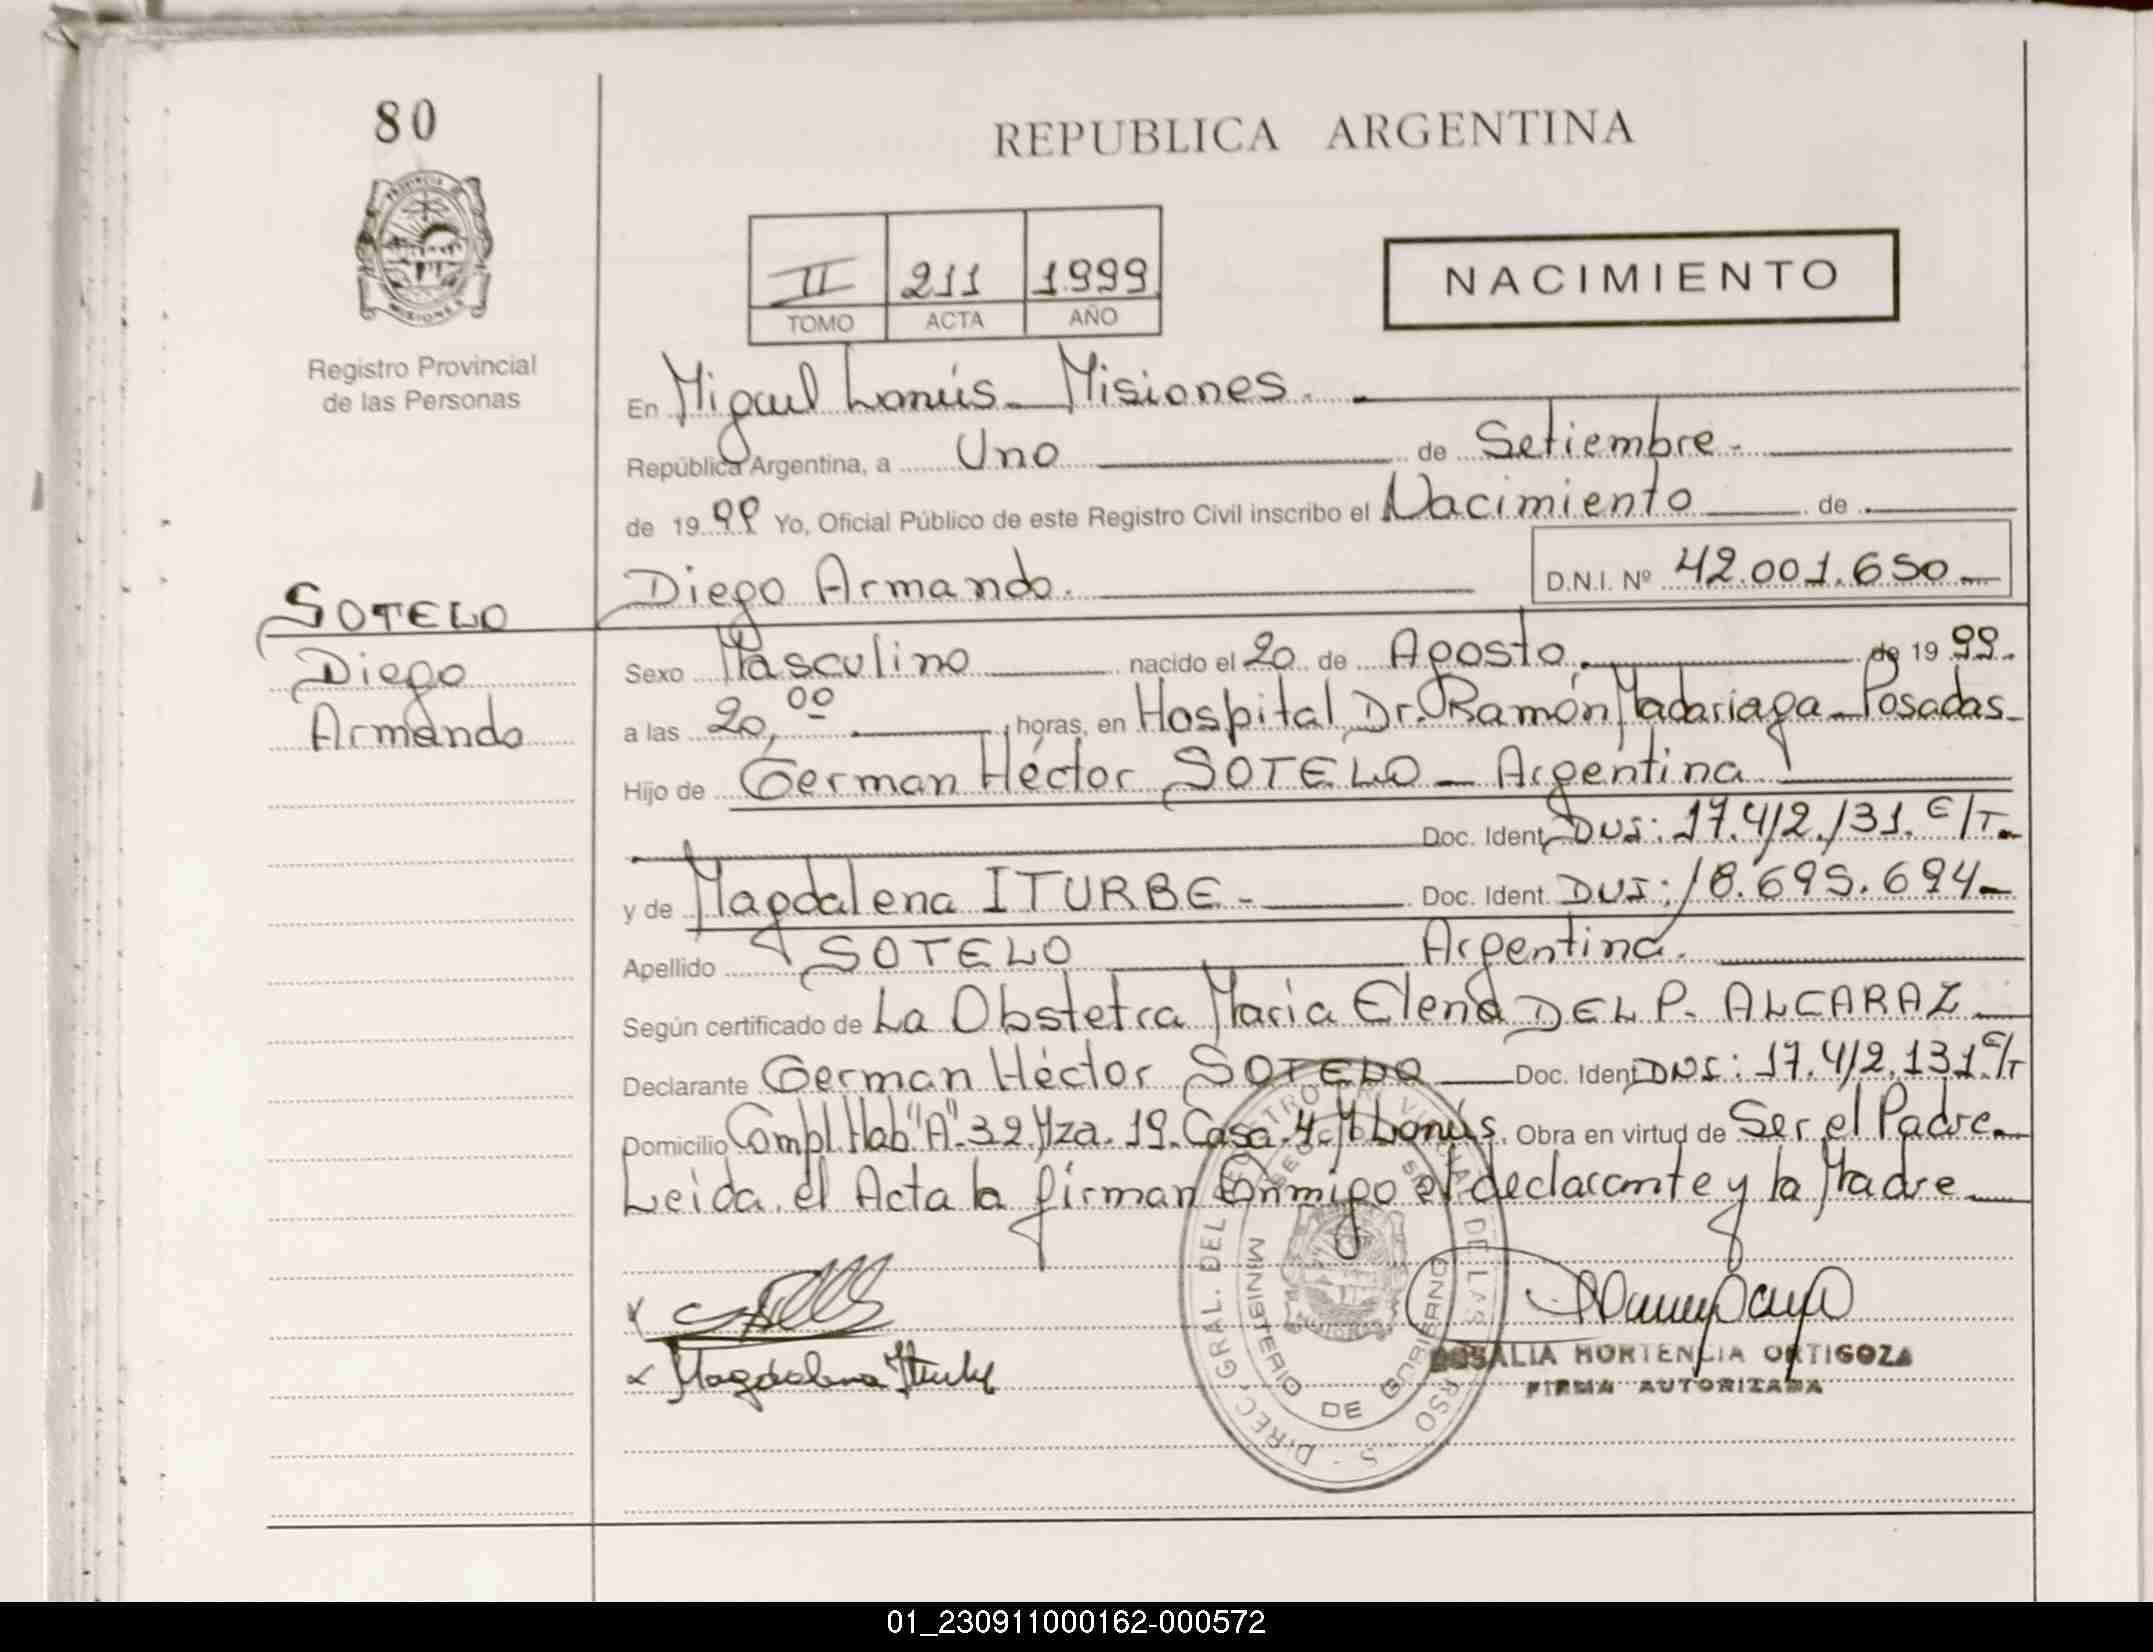 80
PROVINCIA DE
MISIONES
Registro Provincial
de las Personas
REPUBLICA ARGENTINA
II 211 1.999
TOMO ACTA AÑO
NACIMIENTO
En Miguel Lanús - Misiones.
República Argentina, a Uno de Setiembre -
de 19 99 Yo, Oficial Público de este Registro Civil inscribo el Nacimiento de
Diego Armando. D.N.I. Nº 42.001.650
SOTELO
Diego
Armando
Sexo Masculino nacido el 20 de Agosto. de 19 99.
a las 20,00 horas, en Hospital Dr. Ramón Madariaga - Posadas
Hijo de German Héctor SOTELO - Argentina
Doc. Ident. DNI: 17.412.131. C/T.
y de Magdalena ITURBE - Doc. Ident. DNI: 18.695.694
Apellido SOTELO Argentina.
Según certificado de La Obstetra Maria Elena DEL P. ALCARAZ
Declarante German Héctor SOTELO Doc. Ident. DNI: 17.412.131 C/T
Domicilio Compl. Hab "A" 32 Mza. 19. Casa 4. M Lanús. Obra en virtud de Ser el Padre.
Leida el Acta la firman Conmigo el declarante y la Madre
Magdalena Iturbe
DIREC. GRAL. DEL REGISTRO
MINISTERIO DE GOBIERNO
ROSALIA HORTENCIA ORTIGOZA
FIRMA AUTORIZADA
01_230911000162-000572